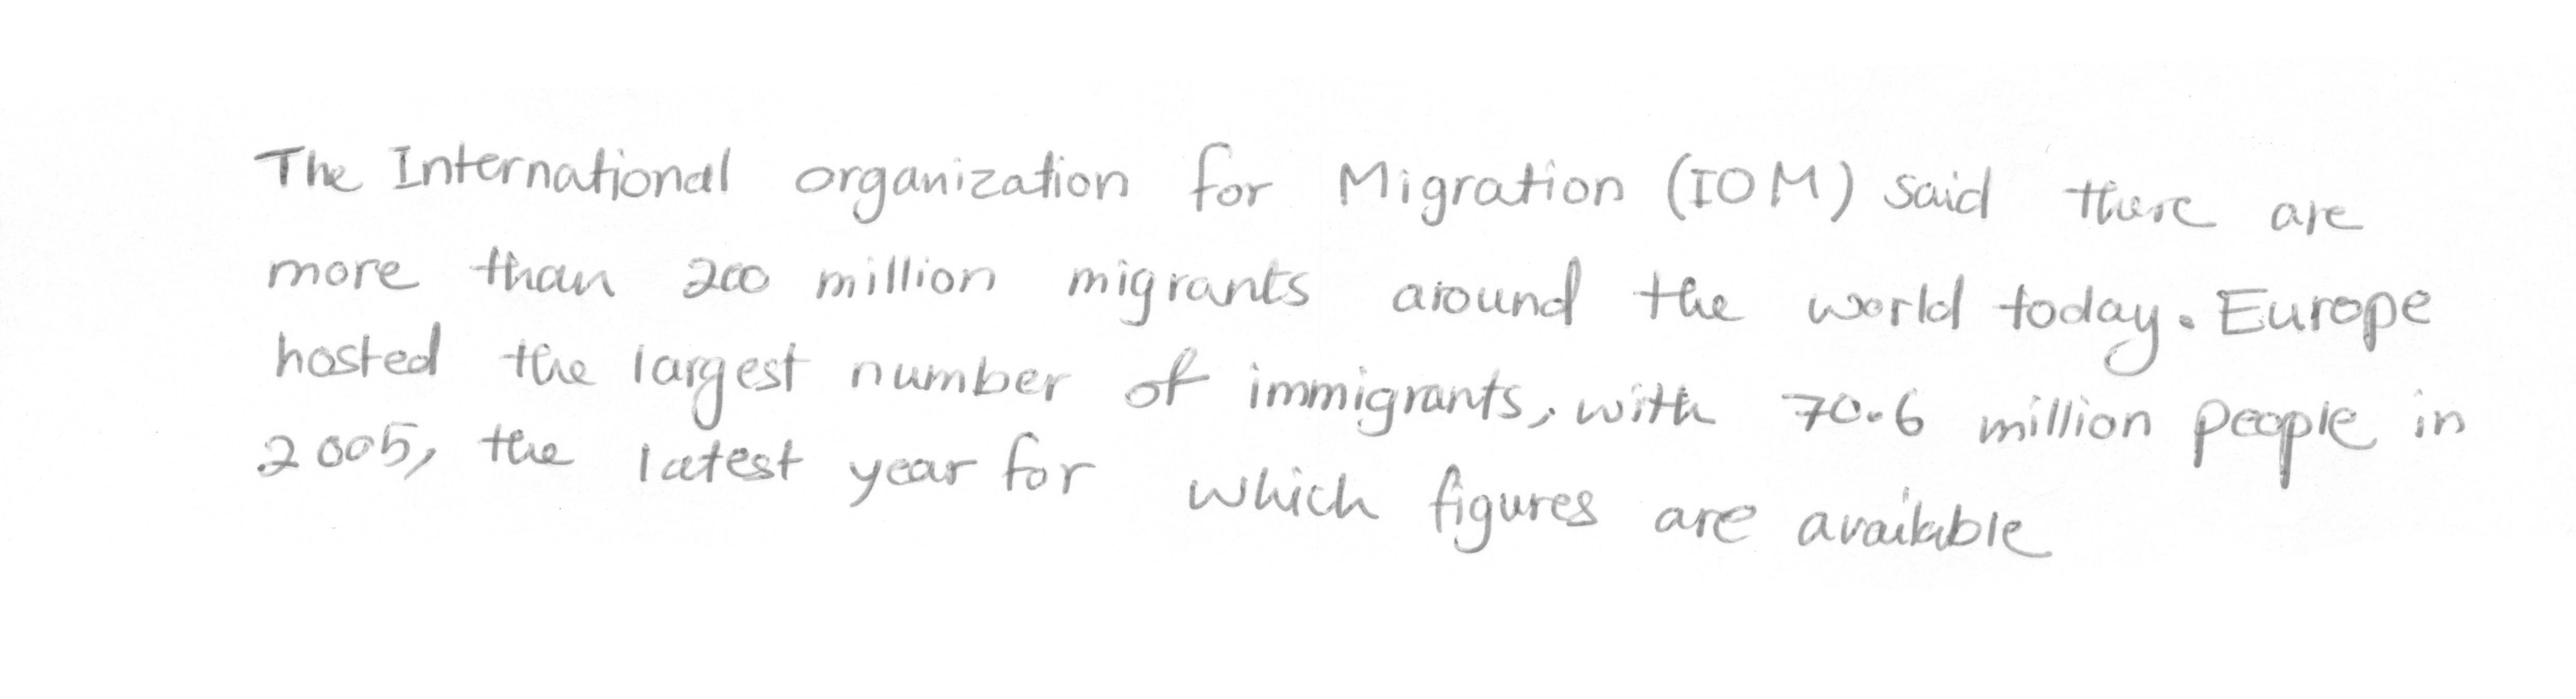 The International organization for Migration (IOM) said there are
more than 200 million migrants around the world today. Europe
hosted the largest number of immigrants, with 70.6 million people in
2005, the latest year for which figures are available